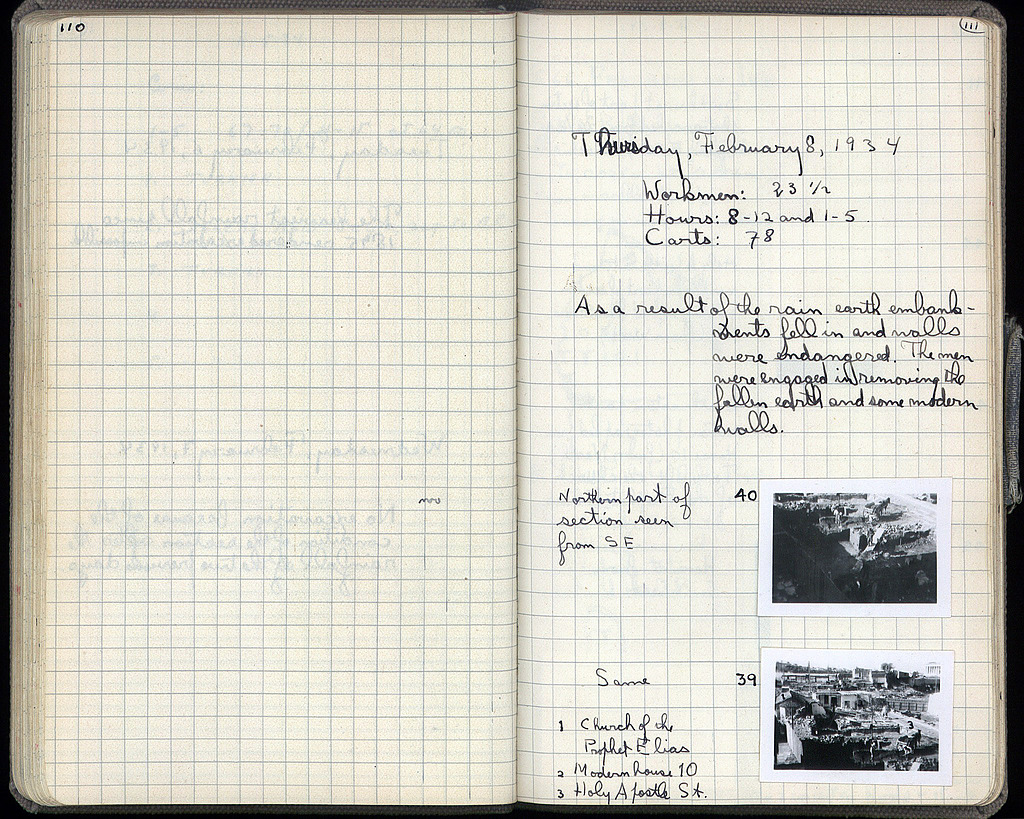 110
111
Thursday, February 8, 1934
Workmen: 23 1/2
Hours: 8-12 and 1-5.
Carts: 78
As a result of the rain earth embank-
ments fell in and walls
were endangered. The men
were engaged in removing the
fallen earth and some modern
walls.
Northern part of
section seen
from SE
40
Same
39
1 Church of the
Prophet Elias
2 Modern house 10
3 Holy Apostle St.